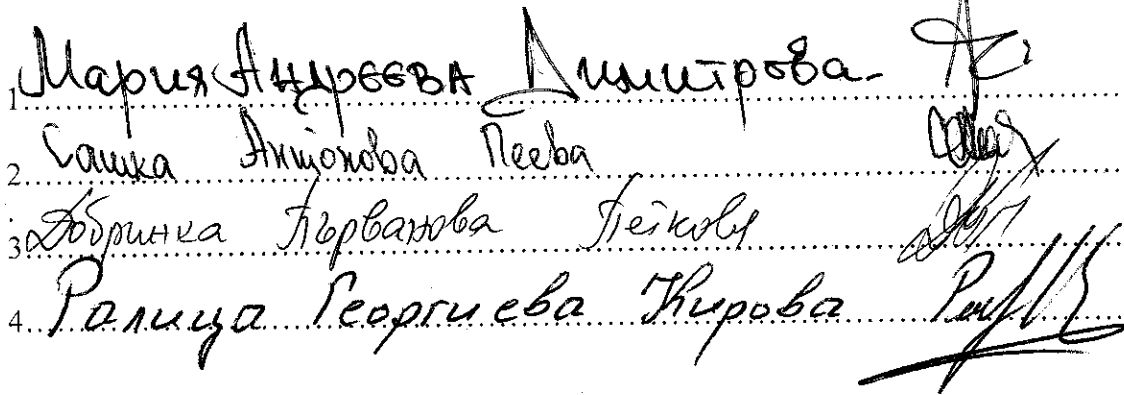 1. Мария Андреева Димитрова
2. Сашка Антонова Пеева
3. Добринка Първанова Пейкова
4. Ралица Георгиева Кирова